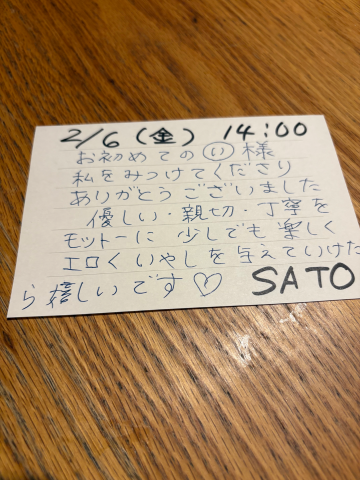 2/6（金） 14:00
お初めての い 様
私をみつけてくださり
ありがとうございました
優しい・親切・丁寧を
モットーに 少しでも楽しく
エロくいやしを与えていけた
ら嬉しいです♡ SATO